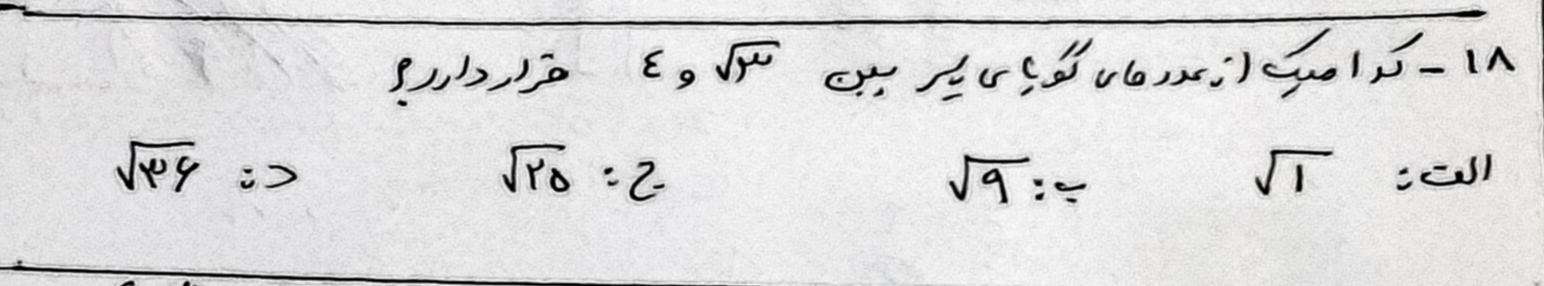 ۱۸ - کدامیک از عددهای گویای زیر بین √۳ و ٤ قرار دارد؟
الف: √۱ ب: √۹ ج: √۲۵ د: √۳۶